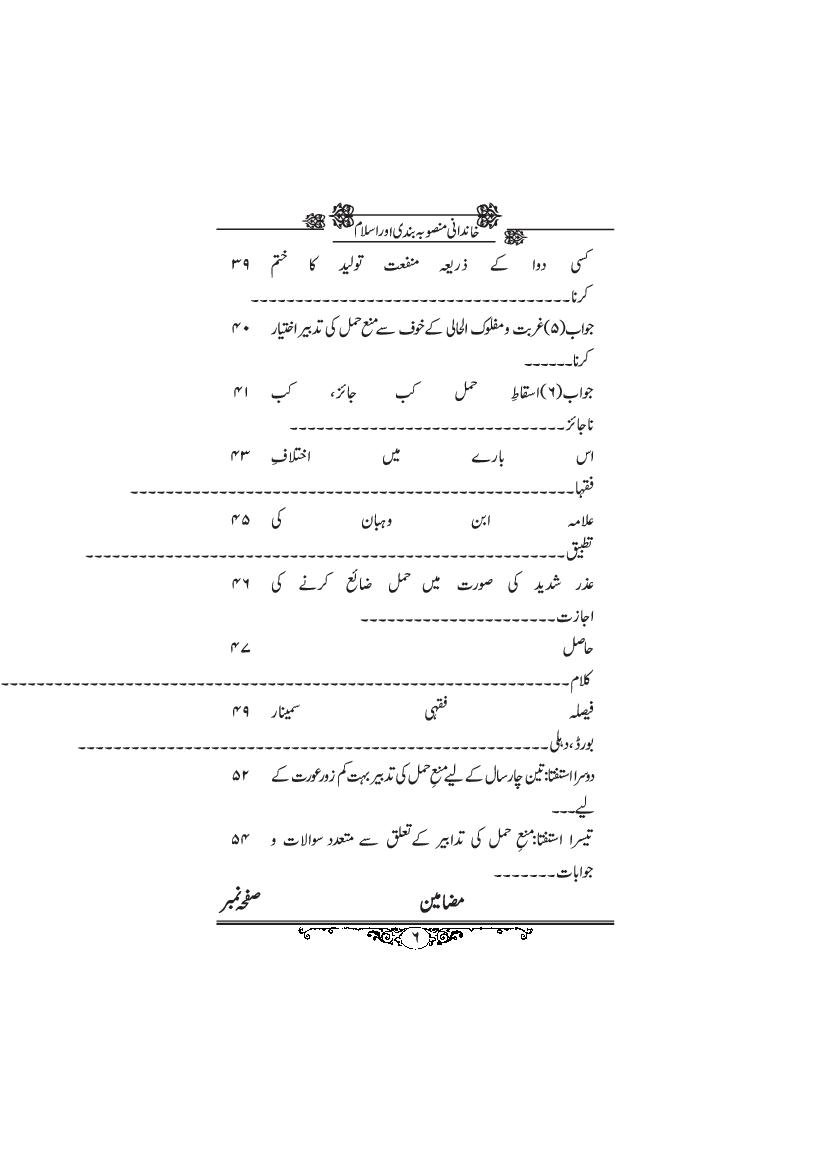 خاندانی منصوبہ بندی اور اسلام
کسی دوا کے ذریعہ منفعت تولید کا ختم ۳۹
کرنا------------------------------------
جواب(۵)غربت و مفلوک الحالی کے خوف سے منع حمل کی تدبیر اختیار ۴۰
کرنا------
جواب(۶)اسقاطِ حمل کب جائز، کب ۴۱
ناجائز-------------------------------
اس بارے میں اختلافِ ۴۳
فقہا--------------------------------------------------
علامہ ابن وہبان کی ۴۵
تطبیق------------------------------------------------------
عذر شدید کی صورت میں حمل ضائع کرنے کی ۴۶
اجازت----------------------
حاصل ۴۷
کلام----------------------------------------------------------------
فیصلہ فقہی سمینار ۴۹
بورڈ،دہلی-----------------------------------------------------
دوسرا استفتا:تین چار سال کے لیے منعِ حمل کی تدبیر بہت کم زور عورت کے ۵۲
لیے---
تیسرا استفتا:منعِ حمل کی تدابیر کے تعلق سے متعدد سوالات و ۵۴
جوابات-------
مضامین صفحہ نمبر
۶